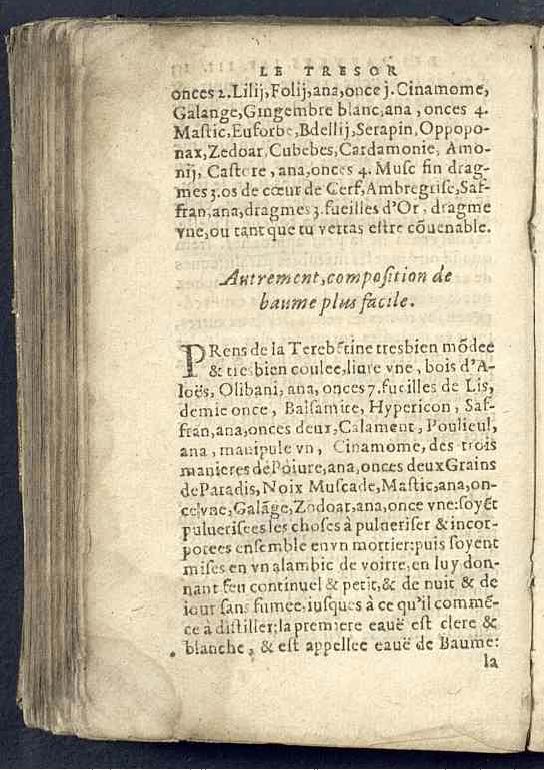 LE TRESOR
onces 2. Lilij, Folij, ana, once j. Cinamome,
Galange, Gingembre blanc, ana, onces 4.
Mastic, Euforbe, Bdellij, Serapin, Oppopo-
nax, Zedoar, Cubebes, Cardamonie, Amo-
nij, Castore, ana, onces 4. Musc fin drag-
mes 3. os de cœur de Cerf, Ambregrise, Saf-
fran, ana, dragmes 3. fueilles d'Or, dragme
vne, ou tant que tu verras estre cõuenable.
Autrement, composition de
baume plus facile.
PRens de la Terebẽtine tresbien mõdee
& tresbien coulee, liure vne, bois d'A-
loës, Olibani, ana, onces 7. fueilles de Lis,
demie once, Balsamite, Hypericon, Saf-
fran, ana, onces deux, Calament, Poulieul,
ana, manipule vn, Cinamome, des trois
manieres de Poiure, ana, onces deux Grains
de Paradis, Noix Muscade, Mastic, ana, on-
ce vne, Galãge, Zodoar, ana, once vne: soyẽt
puluerisees les choses à pulueriser & incor-
porees ensemble en vn mortier: puis soyent
mises en vn alambic de voirre, en luy don-
nant feu continuel & petit, & de nuit & de
iour sans fumee, iusques à ce qu'il commẽ-
ce à distiller: la premiere eauë est clere &
blanche, & est appellee eauë de Baume:
la